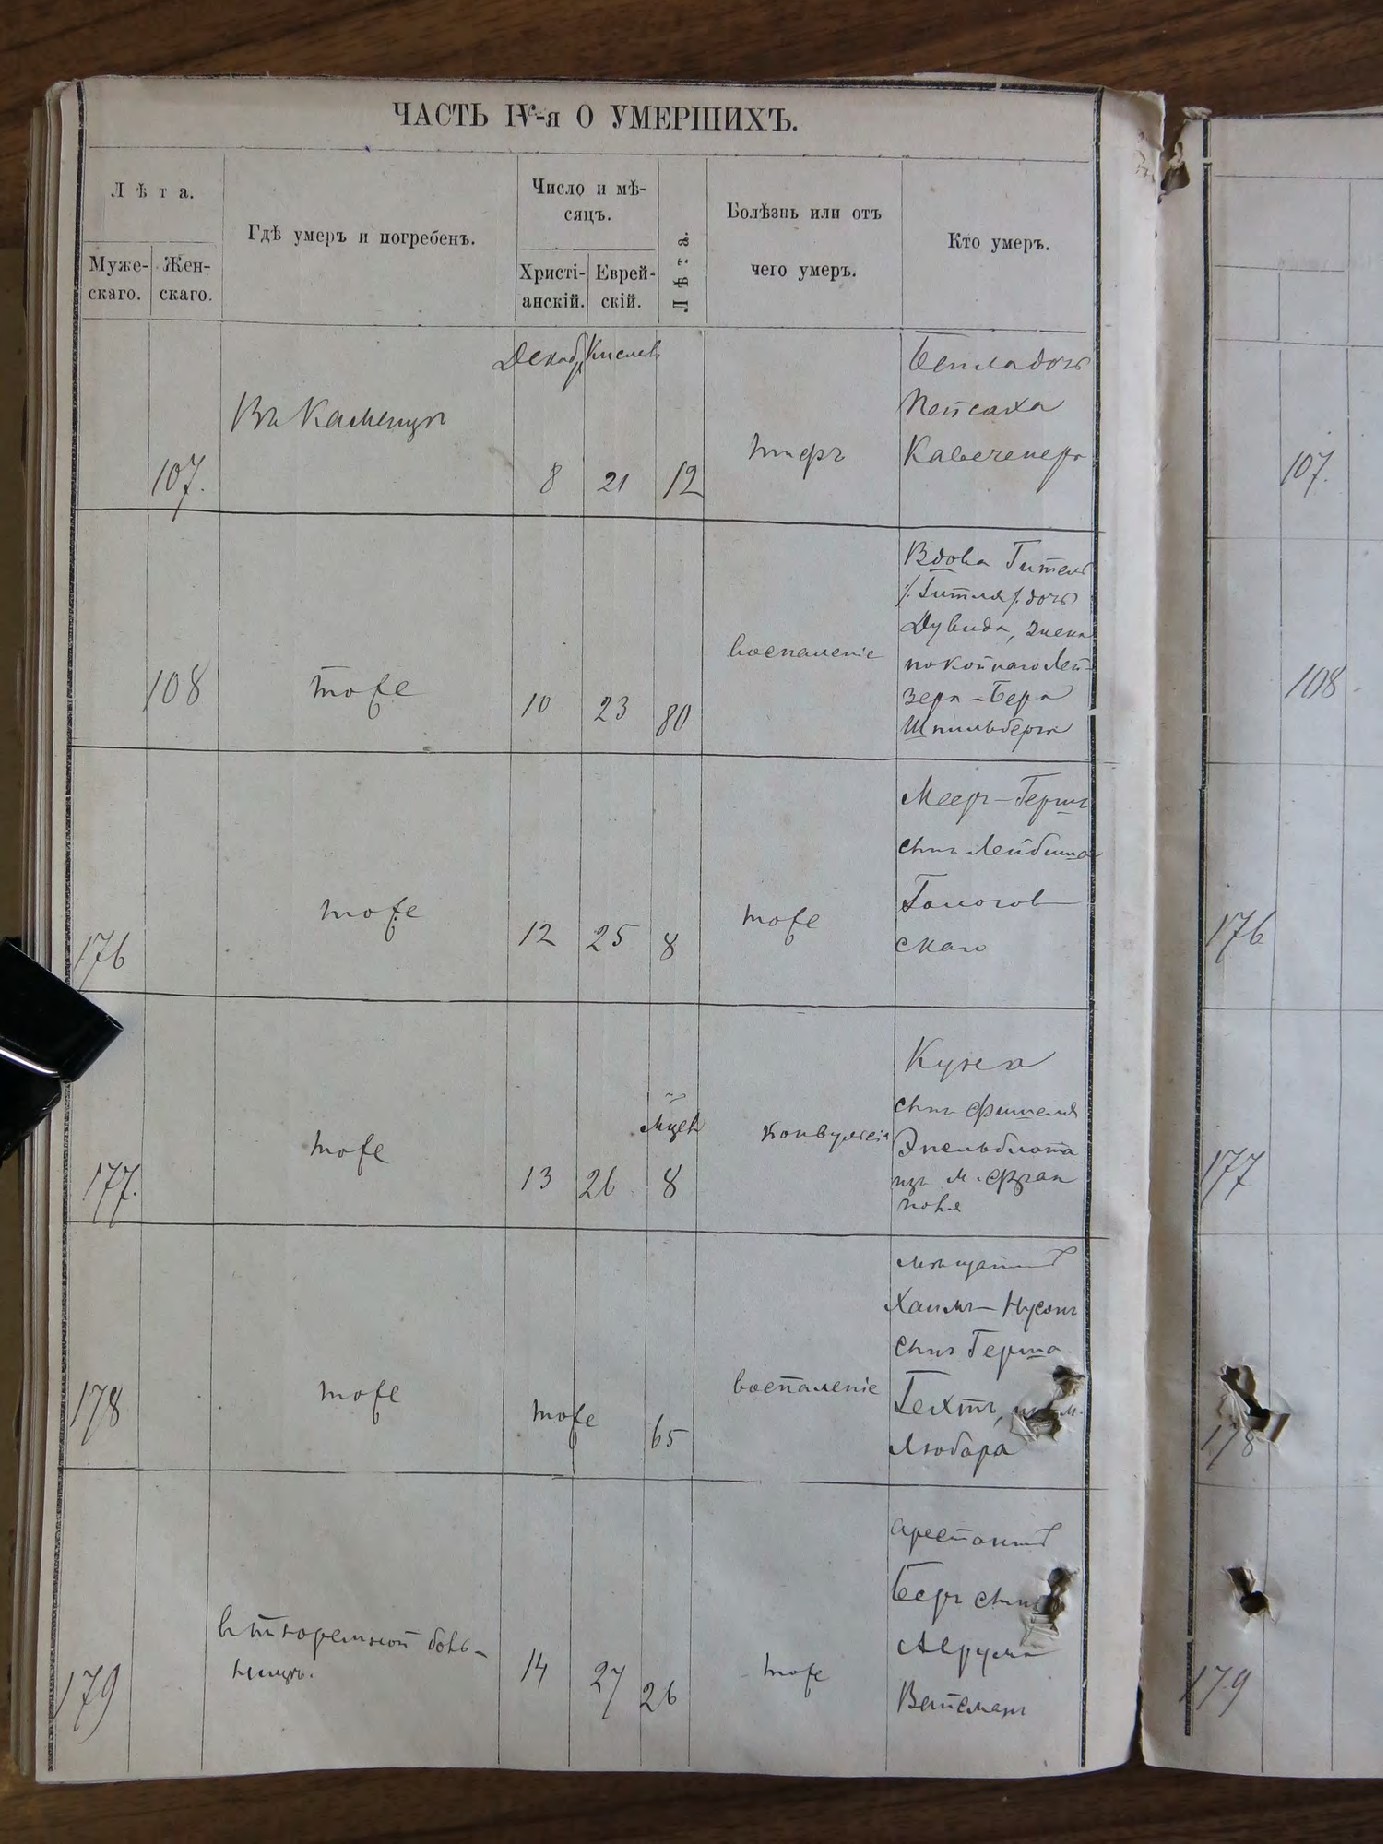 ЧАСТЬ IV-я О УМЕРШИХЪ.
Лѣта.
Муже-
скаго.
Жен-
скаго.
Гдѣ умеръ и погребенъ.
Число и мѣ-
сяцъ.
Христі-
анскій.
Еврей-
скій.
Лѣта.
Болѣзнь или отъ
чего умеръ.
Кто умеръ.
Декаб Кислев
107.
Въ Каменцѣ
8
21
12
тифъ
Бейла дочь
Пейсаха
107.
108
тоже
10
23
80
воспаленіе
Вдова Гитель
/:Гитля:/ дочь
Дувида, жена
покойнаго Лей-
зера-Бера
Шпильберга
108
176
тоже
12
25
8
тоже
Мееръ-Гершъ
сынъ Лейбиша
Гологов
скаго
176
177.
тоже
13
26
8
мцев
конвульсія
сынъ Фишеля
Эпельблата
изъ м. Фрам
поля
177
178
тоже
тоже
65
воспаленіе
мѣщанинъ
Хаимъ-Нусонъ
сынъ Герша
Гехтъ, м.
Любара
178
179
в тюремной боль-
ницѣ.
14
27
26
тоже
арестантъ
Беръ сынъ
Аврума
Вейсманъ
179